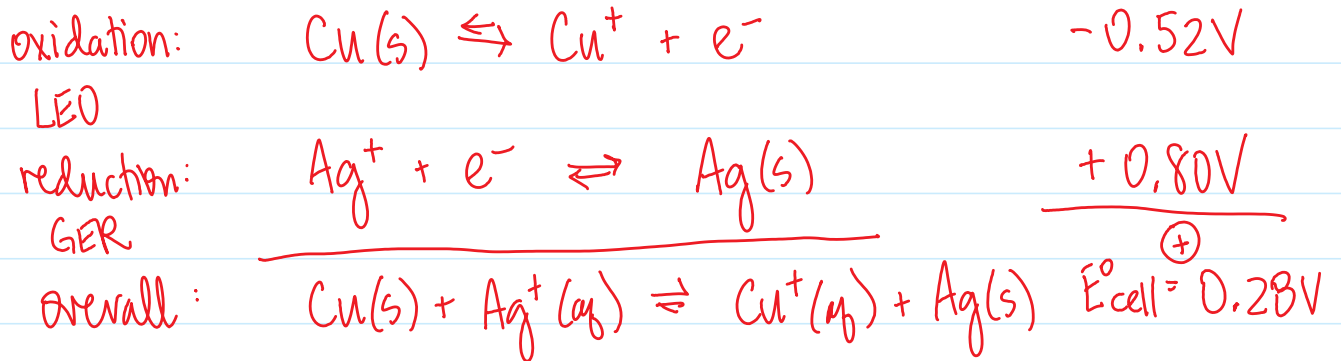 oxidation: Cu(s) ⇔ Cu⁺ + e⁻ -0.52V
LEO
reduction: Ag⁺ + e⁻ ⇌ Ag(s) + 0.80V
GER
(+)
overall: Cu(s) + Ag⁺(aq) ⇌ Cu⁺(aq) + Ag(s) E°cell = 0.28V